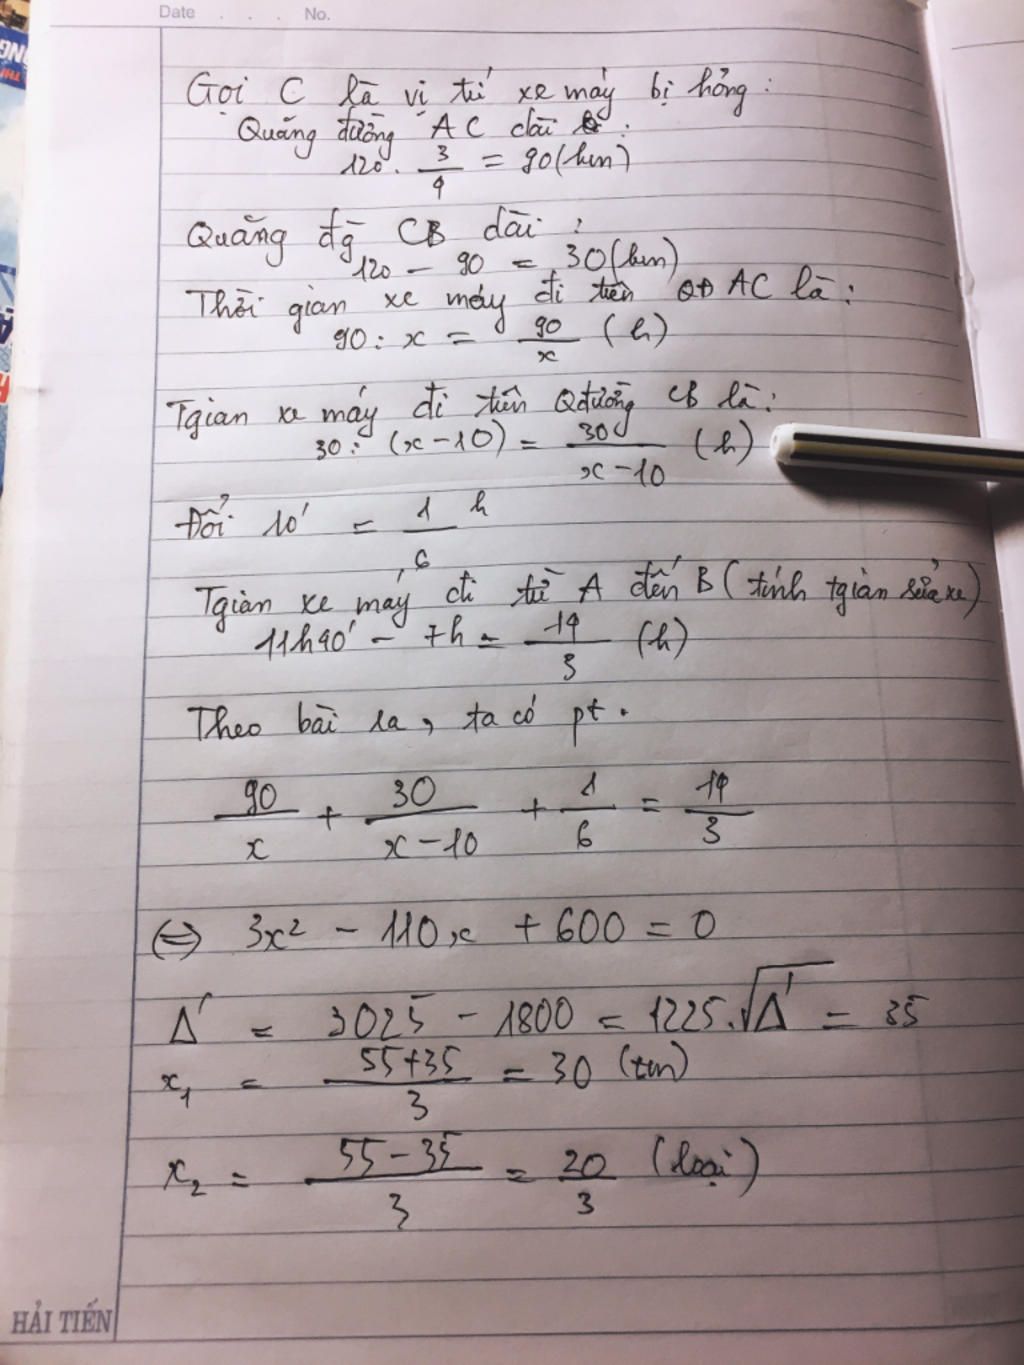 Date . . . No.
Gọi C là vị trí xe máy bị hỏng :
Quãng đường AC dài :
120 . 3/4 = 90 (km)
Quãng đg CB dài :
120 - 90 = 30 (km)
Thời gian xe máy đi trên QĐ AC là :
90 : x = 90/x (h)
Tgian xe máy đi trên Qđường CB là :
30 : (x - 10) = 30/(x - 10) (h)
Đổi 10' = 1/6 h
Tgian xe máy đi từ A đến B (tính tgian sửa xe)
11h40' - 7h = 14/3 (h)
Theo bài ra, ta có pt .
90/x + 30/(x - 10) + 1/6 = 14/3
(=) 3x² - 110x + 600 = 0
Δ' = 3025 - 1800 = 1225. √Δ' = 35
x₁ = (55+35)/3 = 30 (tm)
x₂ = (55 - 35)/3 = 20/3 (loại)
HẢI TIẾN